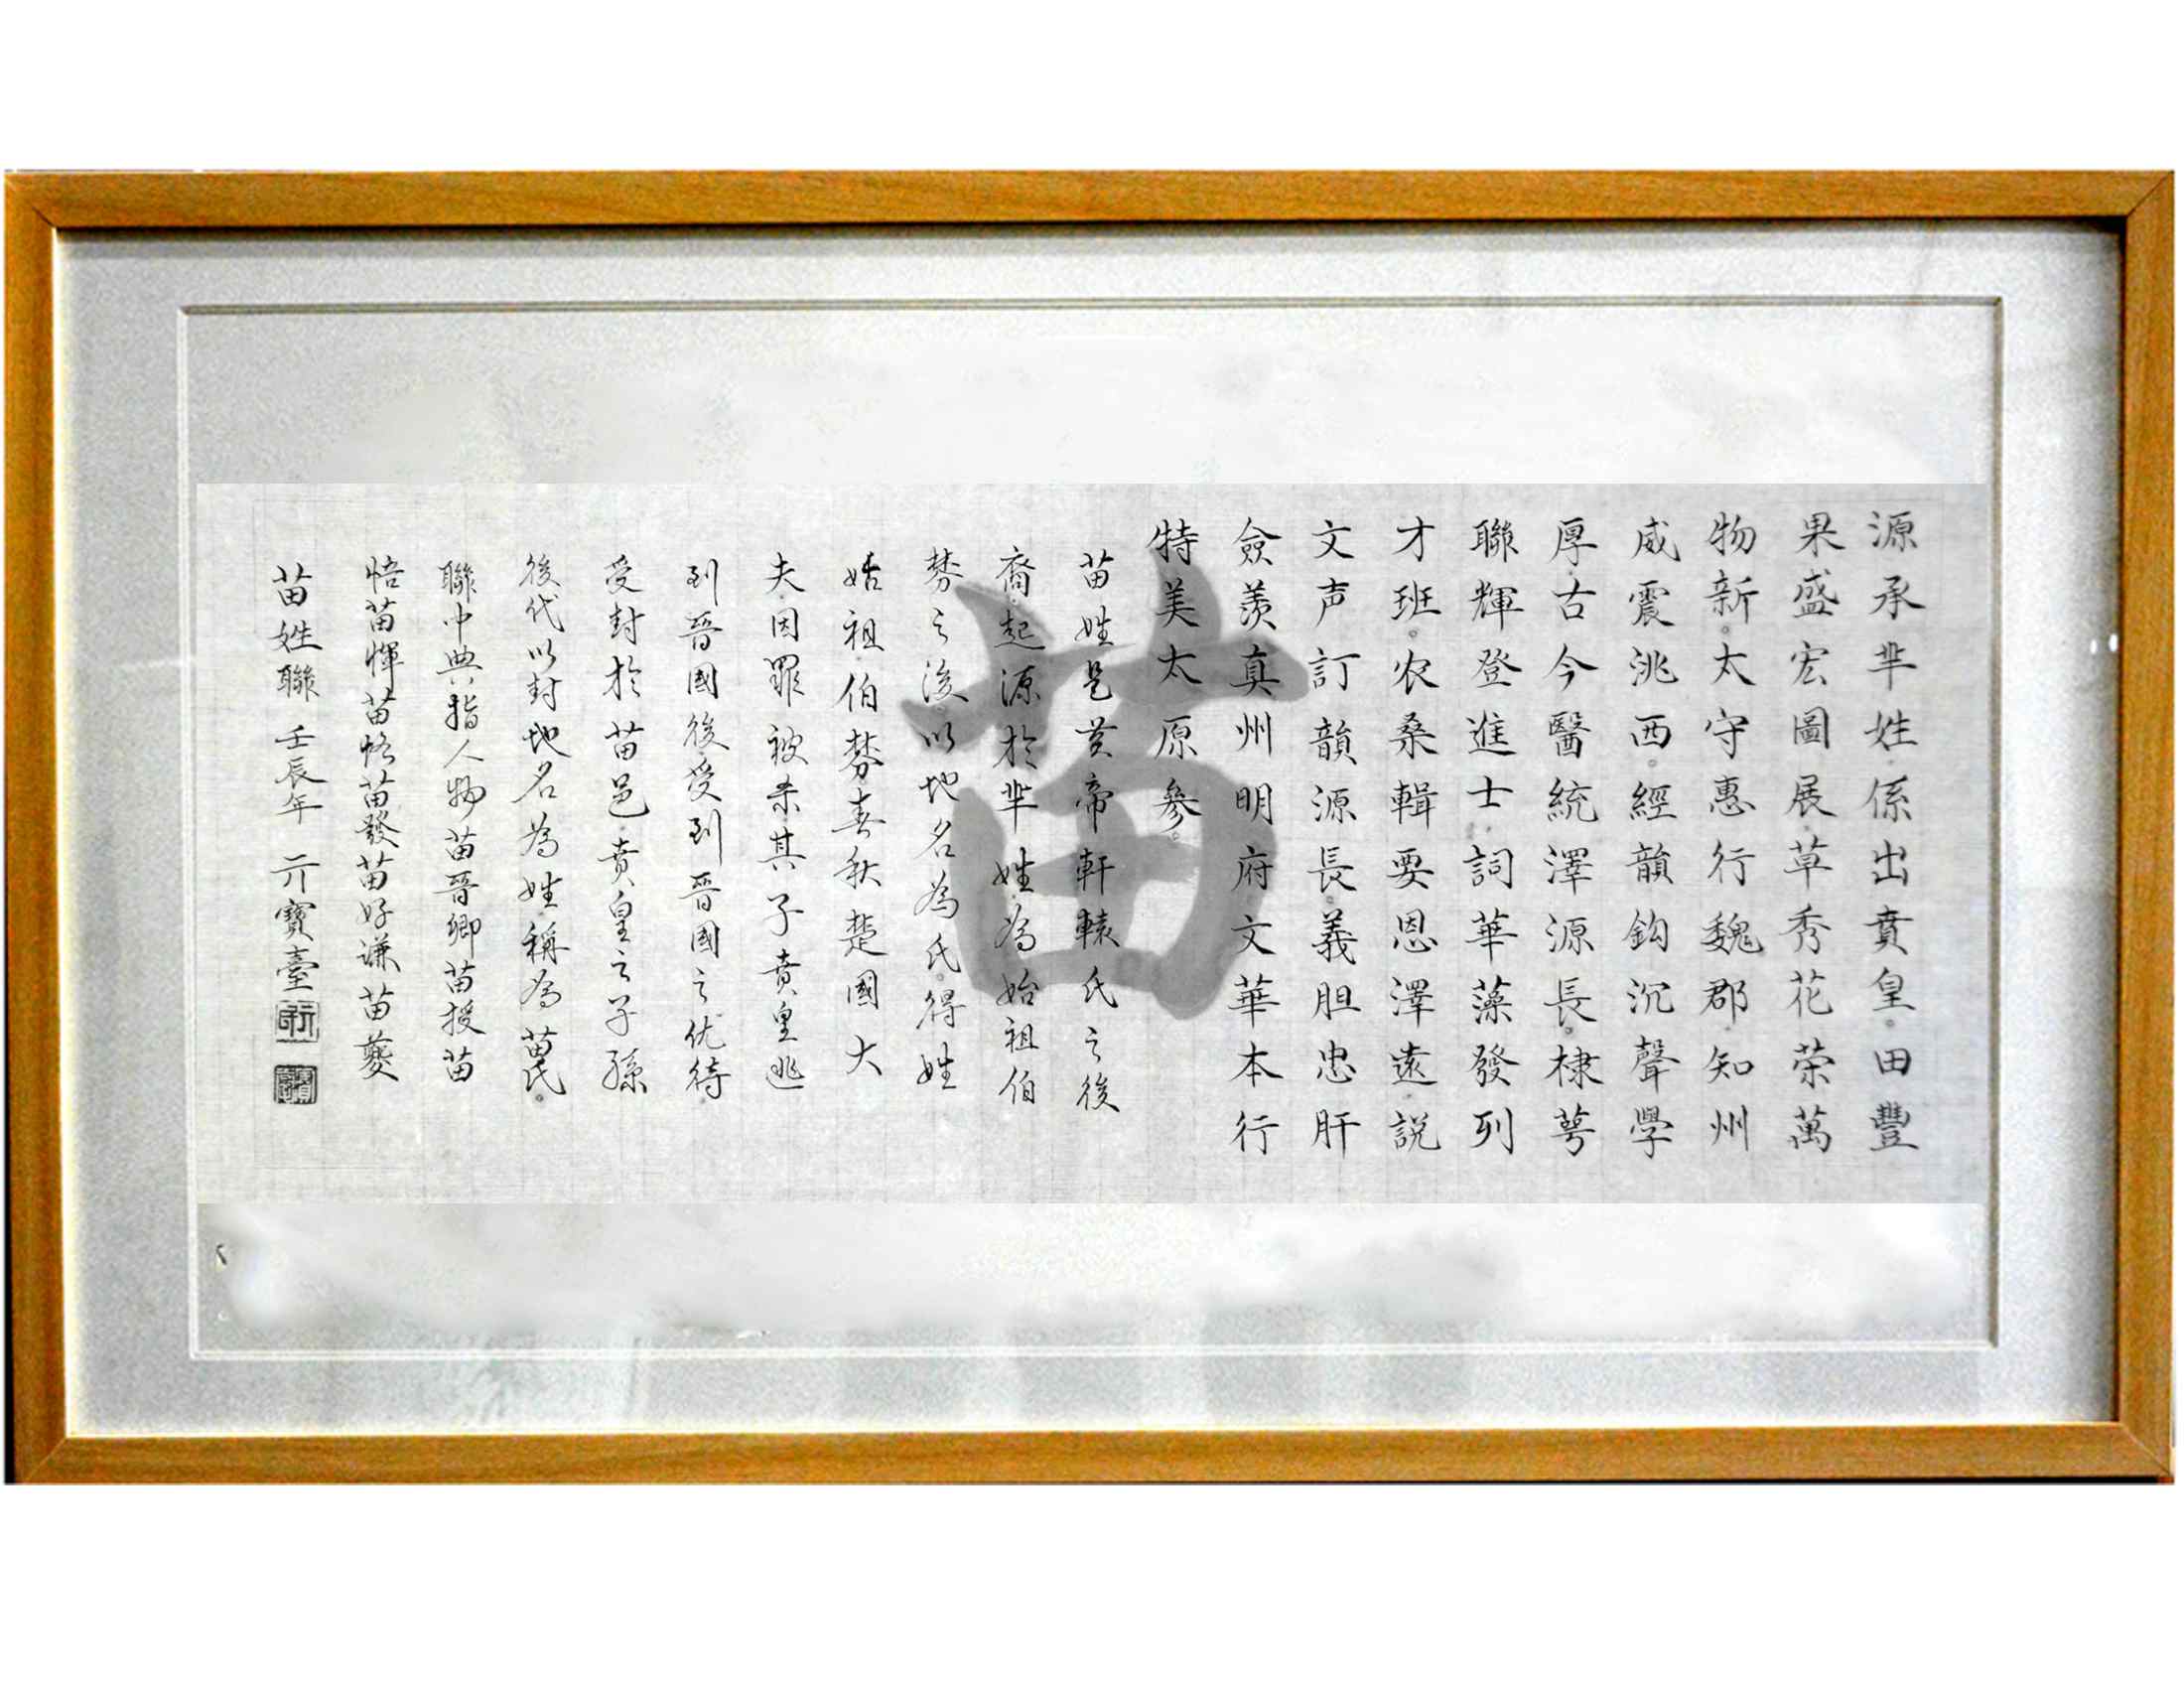 源承芈姓係出賁皇田豐
果盛宏圖展草秀花荣萬
物新太守惠行魏郡知州
威震洮西經韻鈎沉聲學
厚古今醫統澤源長棣萼
聯輝登進士詞華藻發列
才班农桑輯要恩澤遠説
文声訂韻源長義胆忠肝
僉羨真州明府文華本行
特美太原參
苗
苗姓是黄帝軒轅氏之後
裔起源於芈姓為始祖伯
棼之後以地名為氏得姓
始祖伯棼春秋楚國大
夫因罪被杀其子賁皇逃
到晉國後受到晉國之优待
受封於苗邑賁皇之子孫
後代以封地名為姓稱為苗氏
聯中典指人物苗晉卿苗授苗
悟苗惲苗恪苗發苗好谦苗夔
苗姓聯 壬辰年 亓寶臺